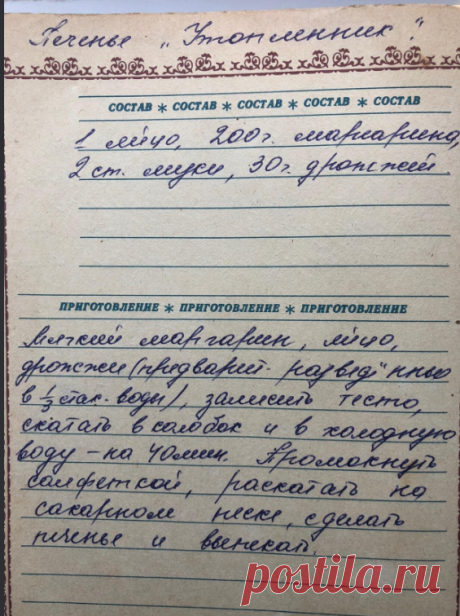 Печенье „Утопленник".
СОСТАВ * СОСТАВ * СОСТАВ * СОСТАВ * СОСТАВ
1 яйцо, 200г. маргарина,
2 ст. муки, 30г. дрожжей.
ПРИГОТОВЛЕНИЕ * ПРИГОТОВЛЕНИЕ * ПРИГОТОВЛЕНИЕ
Мягкий маргарин, яйцо,
дрожжи (предварит. развед"нные
в 1/3 стак. воды), замесить тесто,
скатать в колобок и в холодную
воду – на 40 мин. Промокнуть
салфеткой, раскатать на
сахарном песке, сделать
печенье и выпекать.
postila.ru